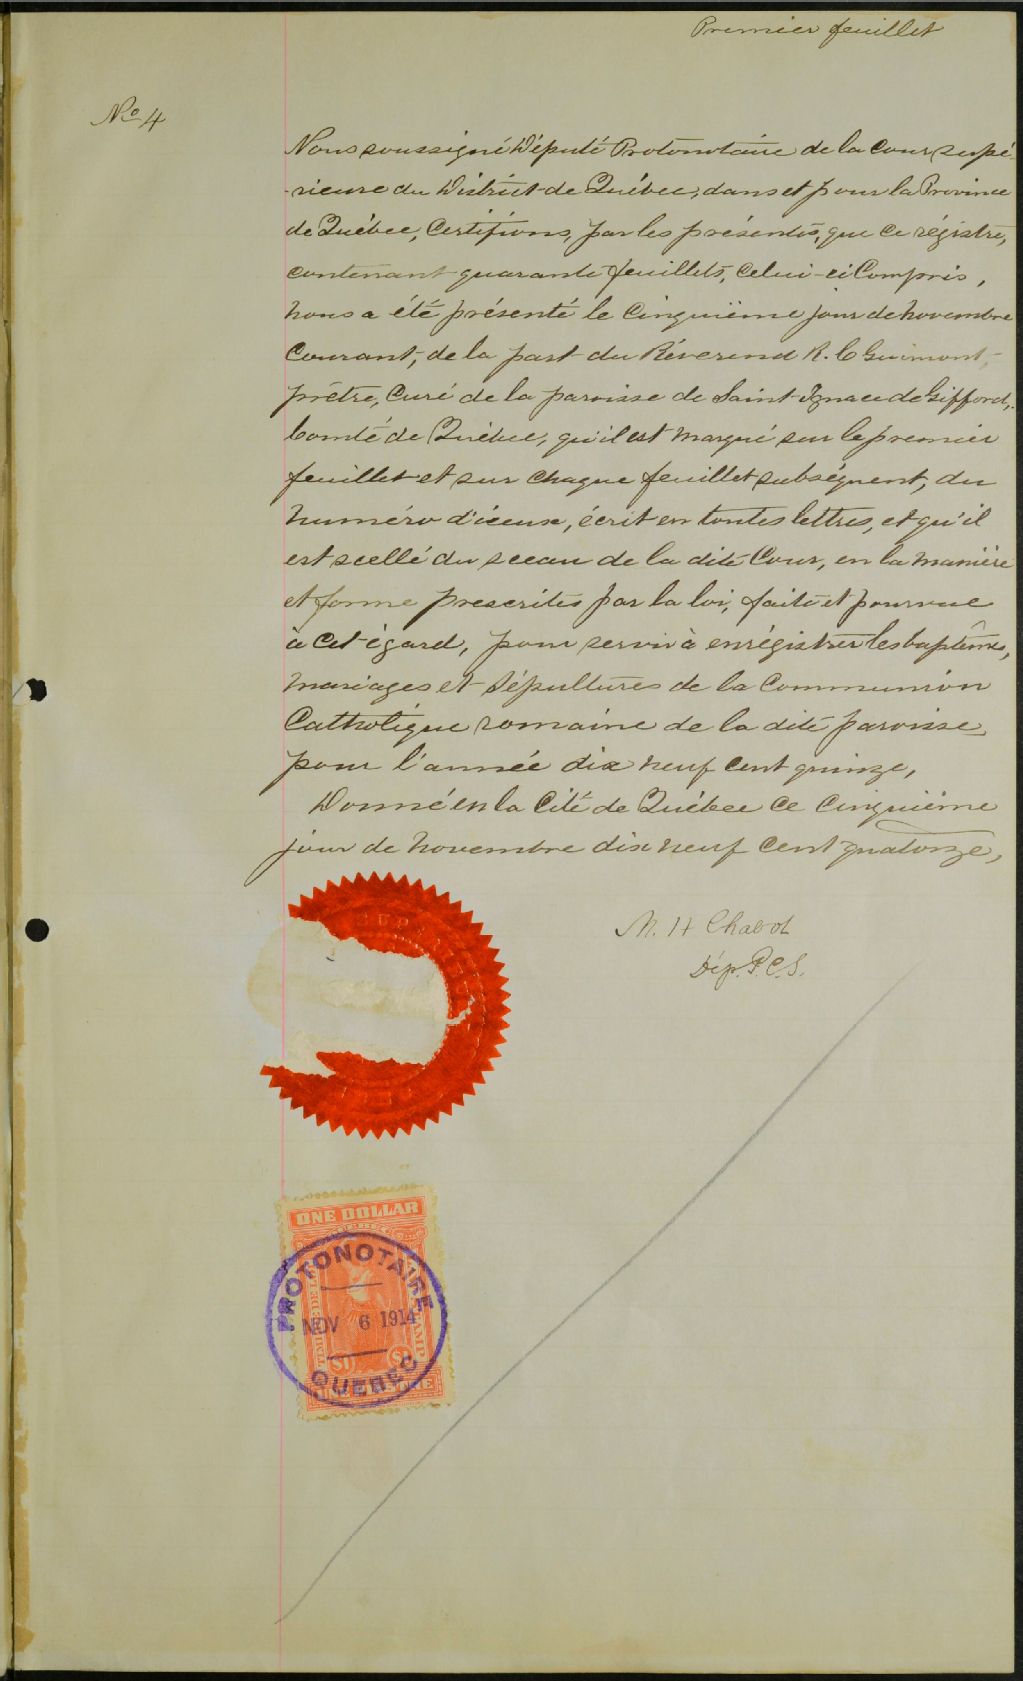 Premier feuillet
No 4
Nous soussigné Député Protonotaire de la Cour supé
-rieure du District de Québec, dans et pour la Province
de Québec, Certifions, par les présentes, que ce régistre,
contenant quarante feuillets, celui-ci Compris,
nous a été présenté le Cinquième jour de novembre
Courant, de la part du Réverend R. C Guimont,
prêtre, Curé de la paroisse de Saint-Ignace de Gifford,
Comté de Québec, qu'il est marqué sur le premier
feuillet et sur chaque feuillet subséquent, du
numéro d'iceux, écrit en toutes lettres, et qu'il
est scellé du sceau de la dite Cour, en la manière
et forme prescrites par la loi, faite et pourvue
à cet égard, pour servir à enrégistrer les baptêmes,
mariages et sépultures de la Communion
Catholique romaine de la dite paroisse,
pour l'année dix neuf cent quinze,
Donné en la Cité de Québec ce cinquième
jour de novembre dix neuf cent quatorze,
M. H Chabot
Dép. P. C. S.
SUPE
ONE DOLLAR
PROTONOTAIRE
NOV 6 1914
QUEBEC
$1 $1